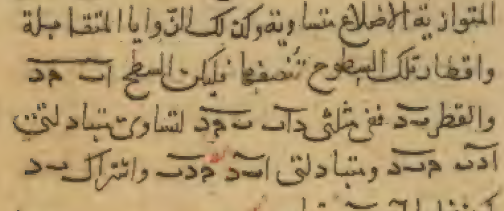 المتوازية الاضلاع متساوية وكذلك الزوايا المتقابلة
واقطار تلك السطوح تنصفها فليكن السطح اب حد
والقطر بد ففى مثلثى داب بحد لتساوى متبادلتى
ادب حبد ومتبادلتى ابد حدب واشتراك بد